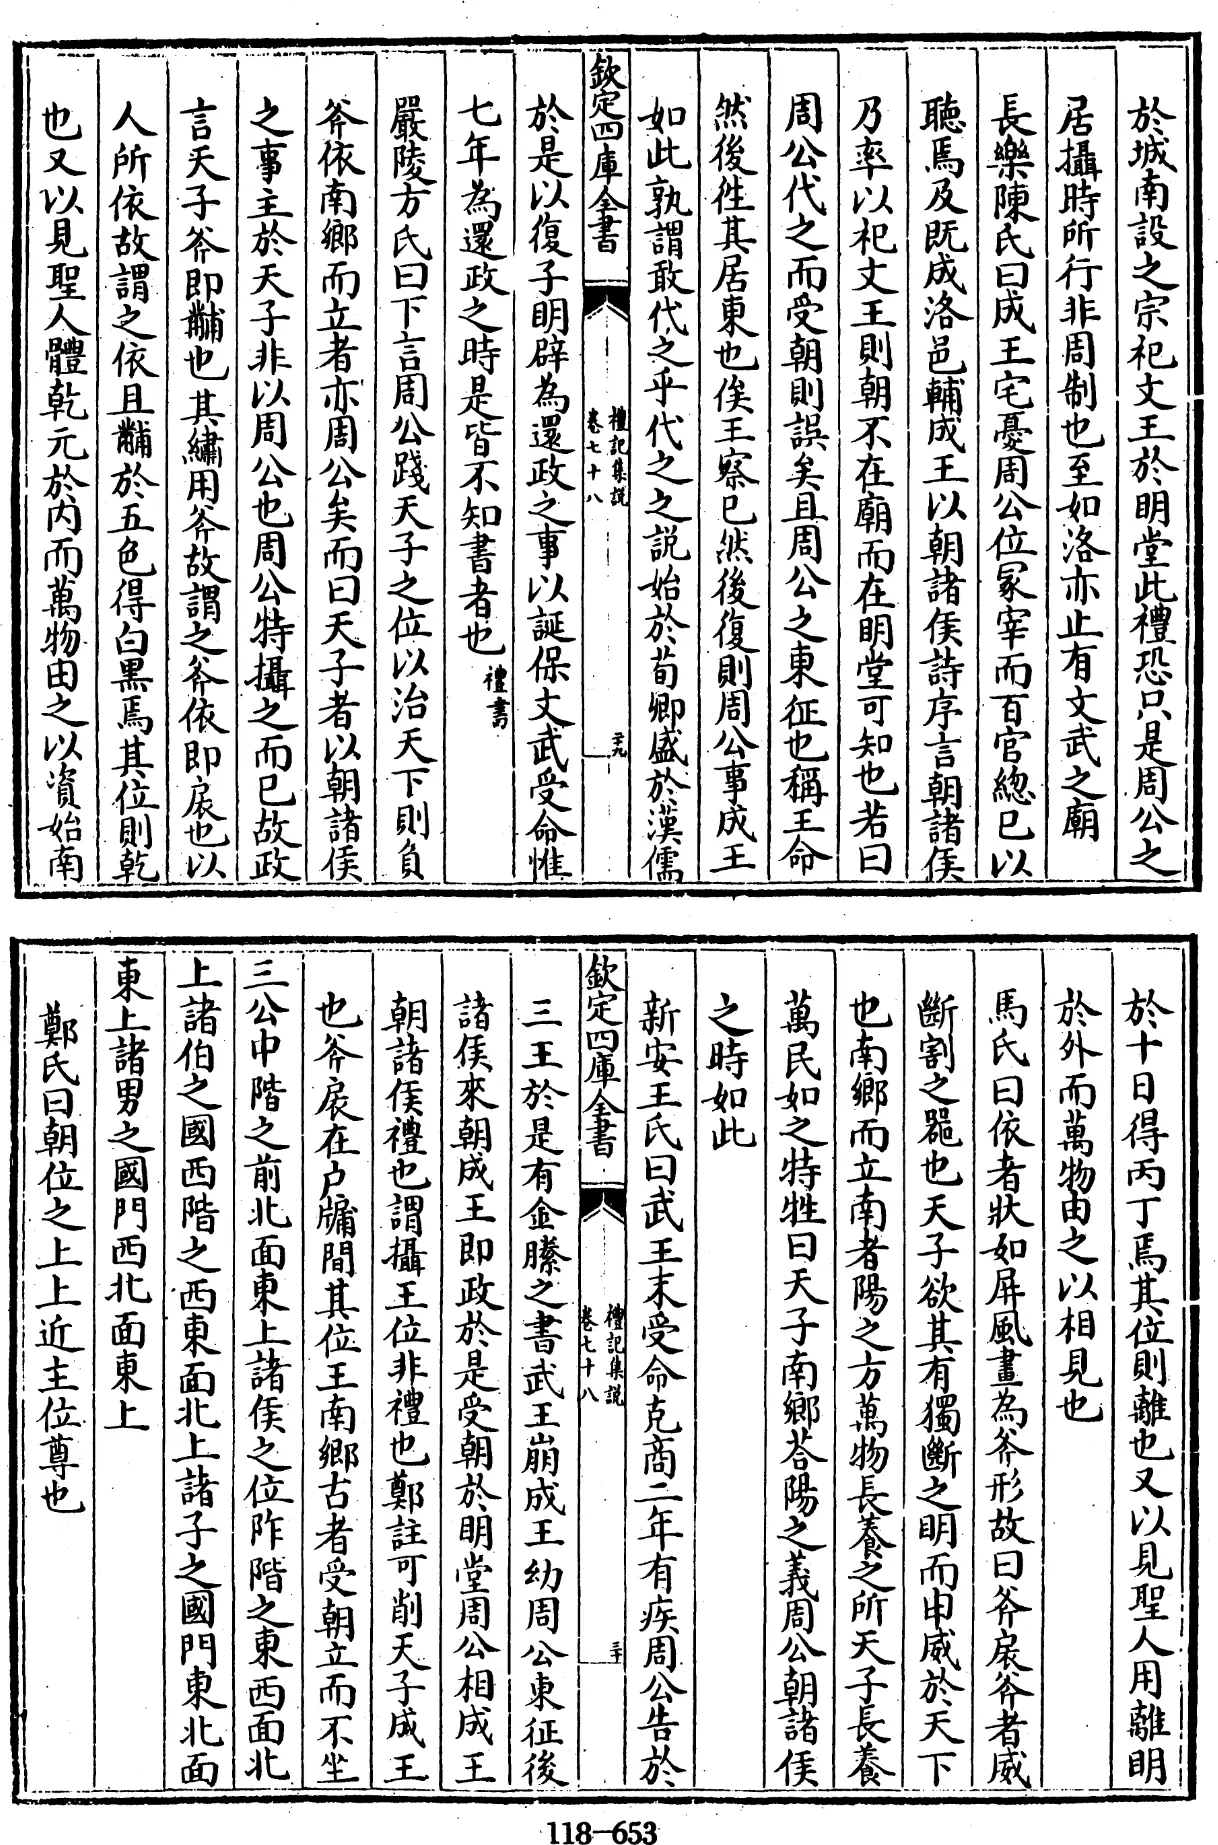 於城南設之宗祀文王於明堂此禮恐只是周公之
居攝時所行非周制也至如洛亦止有文武之廟
長樂陳氏曰成王宅憂周公位冢宰而百官總已以
聽焉及既成洛邑輔成王以朝諸侯詩序言朝諸侯
乃率以祀文王則朝不在廟而在明堂可知也若曰
周公代之而受朝則誤矣且周公之東征也稱王命
然後徃其居東也俟王察已然後復則周公事成王
如此孰謂敢代之乎代之之説始於荀卿盛於漢儒
欽定四庫全書
禮記集説
卷七十八
二十九
於是以復子明辟為還政之事以誕保文武受命惟
七年為還政之時是皆不知書者也禮書
嚴陵方氏曰下言周公踐天子之位以治天下則負
斧依南鄉而立者亦周公矣而曰天子者以朝諸侯
之事主於天子非以周公也周公特攝之而已故政
言天子斧即黼也其繡用斧故謂之斧依即扆也以
人所依故謂之依且黼於五色得白黑焉其位則乾
也又以見聖人體乾元於内而萬物由之以資始南
於十日得丙丁焉其位則離也又以見聖人用離明
於外而萬物由之以相見也
馬氏曰依者狀如屏風畫為斧形故曰斧扆斧者威
斷割之器也天子欲其有獨斷之明而申威於天下
也南鄉而立南者陽之方萬物長養之所天子長養
萬民如之特牲曰天子南鄉荅陽之義周公朝諸侯
之時如此
新安王氏曰武王末受命克商二年有疾周公告於
欽定四庫全書
禮記集説
卷七十八
三十
三王於是有金縢之書武王崩成王幼周公東征後
諸侯來朝成王即政於是受朝於明堂周公相成王
朝諸侯禮也謂攝王位非禮也鄭註可削天子成王
也斧扆在户牖間其位王南鄉古者受朝立而不坐
三公中階之前北面東上諸侯之位阼階之東西面北
上諸伯之國西階之西東面北上諸子之國門東北面
東上諸男之國門西北面東上
鄭氏曰朝位之上上近主位尊也
118-653